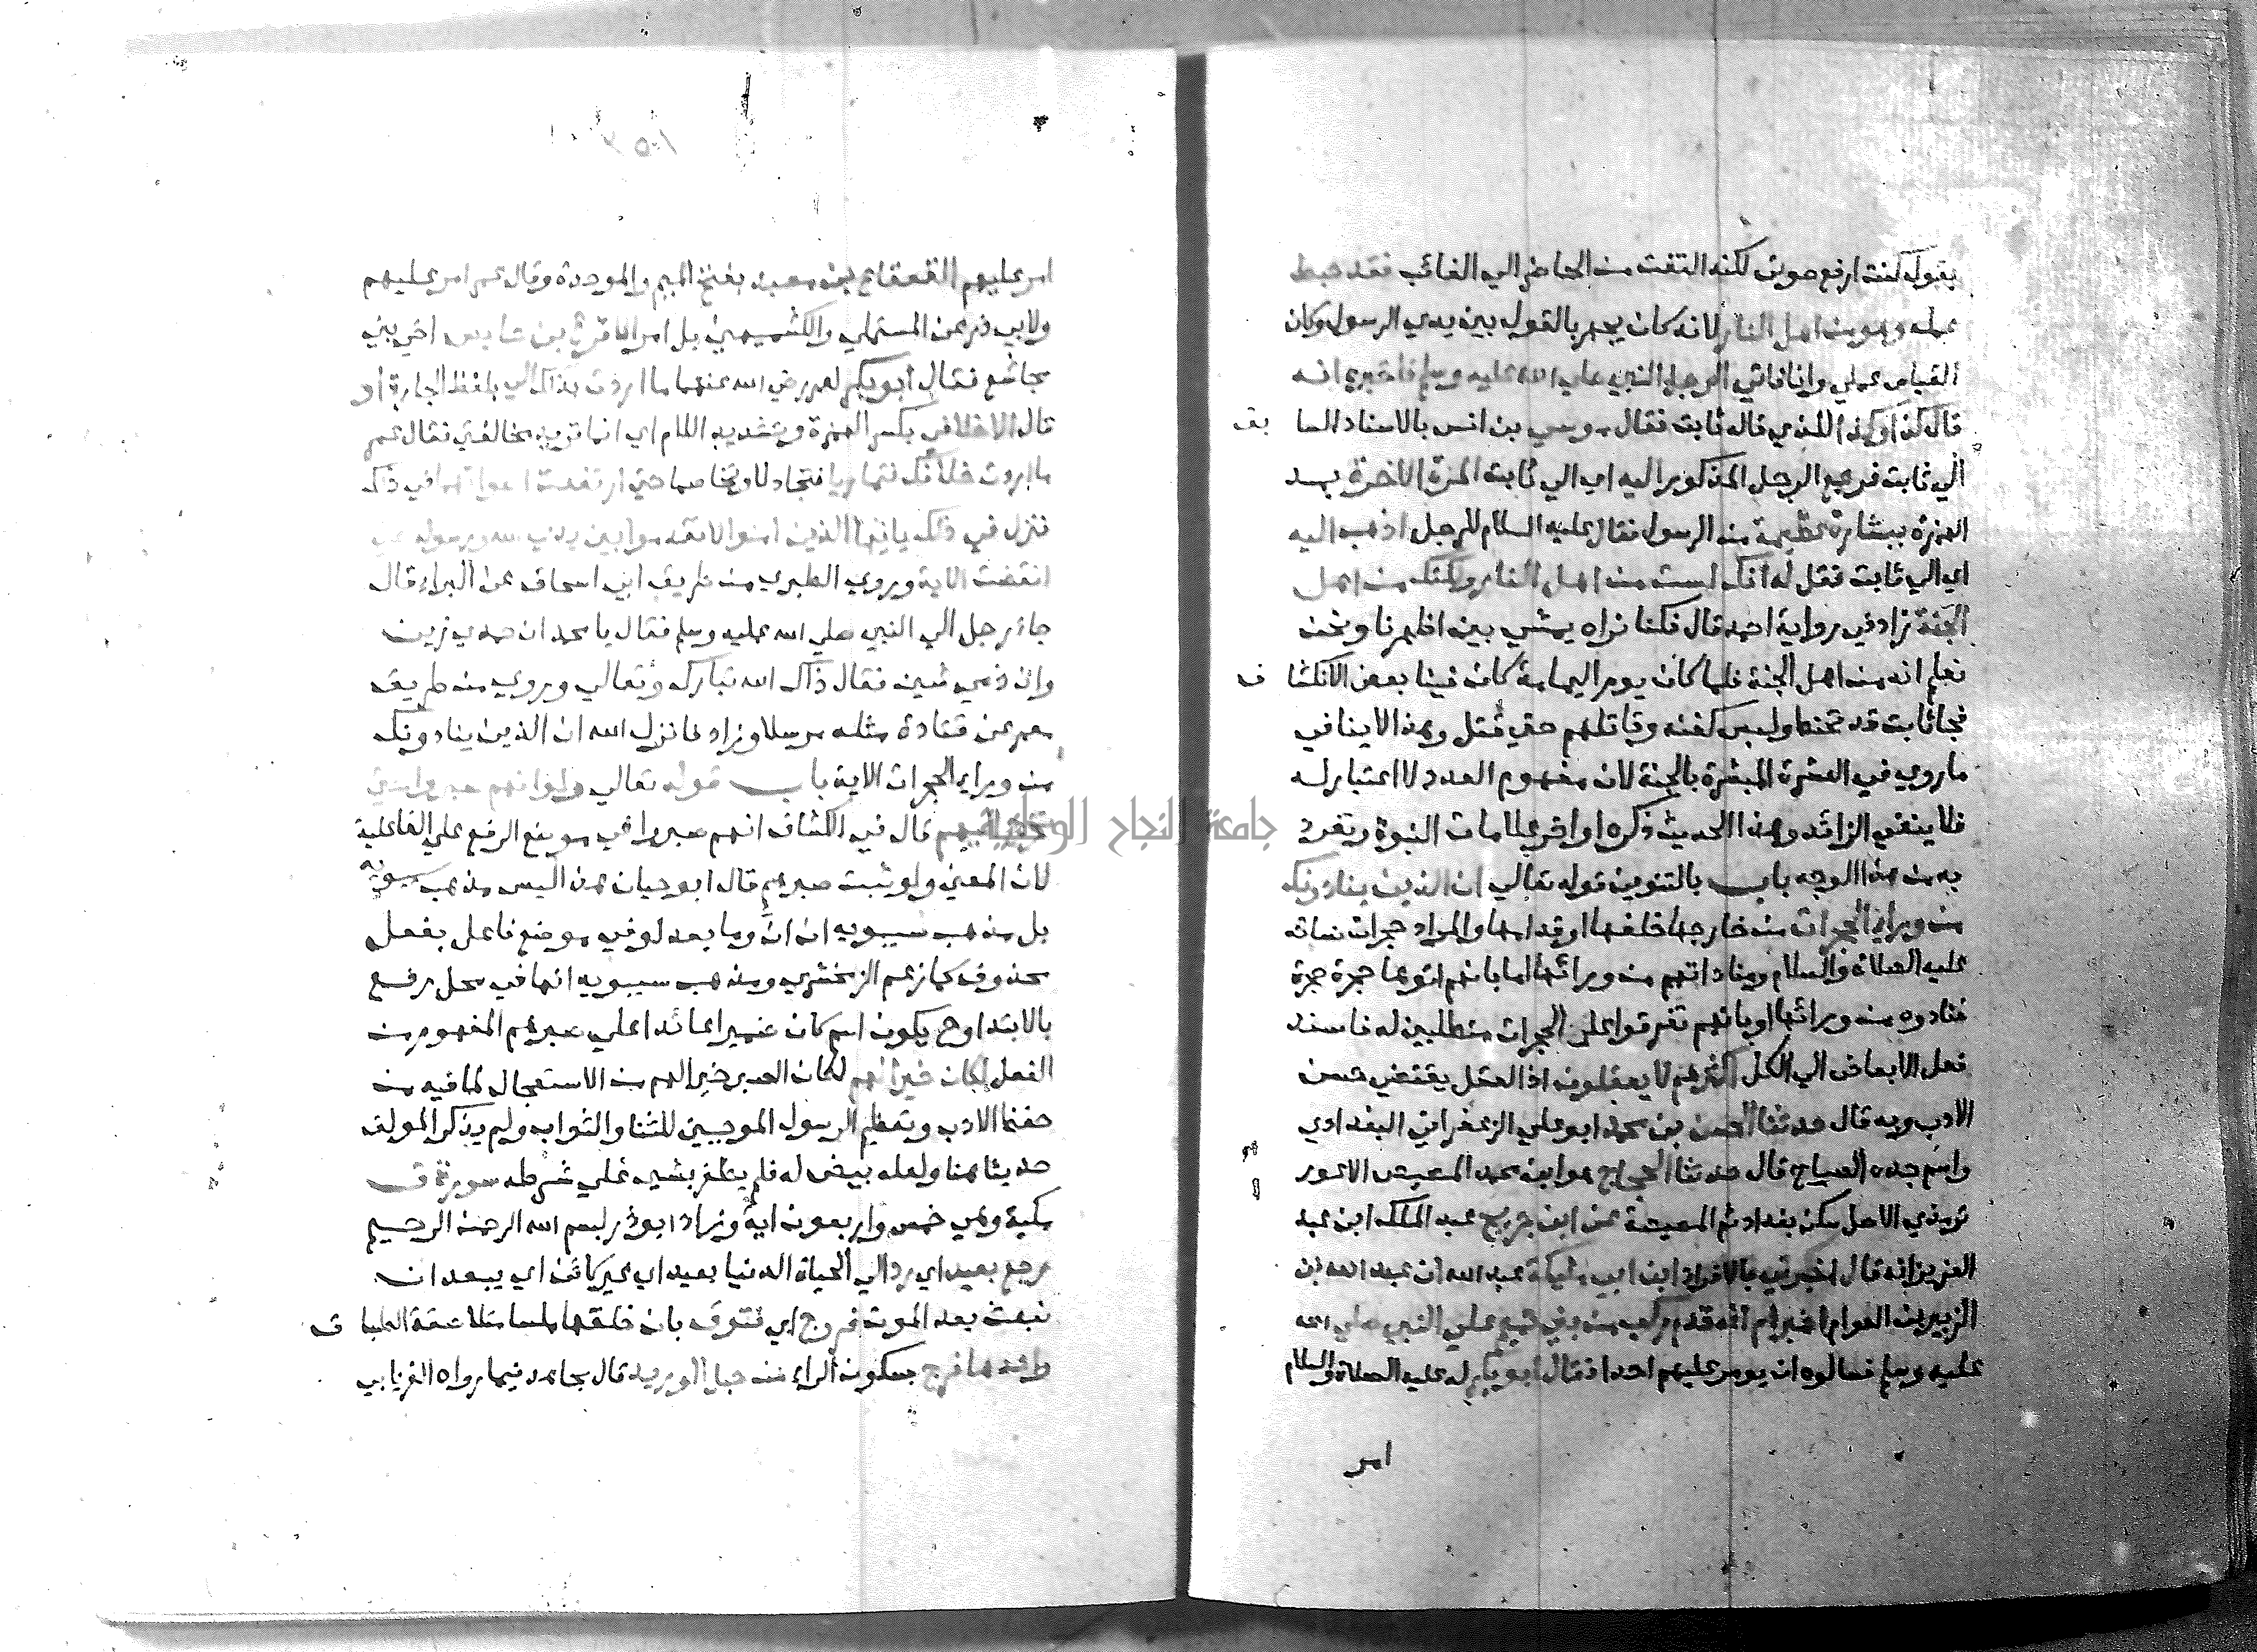 يقول كنت ارفع صوت لكنه التفت من الحاضر الي الغائب فقد حبط
عمله وهو من اهل النار لانه كان يجهر بالقول بين يدي الرسول وكان
القياس عملي وانا فاتي الرجل النبي صلي الله عليه وسلم فاخبره انه
قال كذا وكذا الذي قاله ثابت فقال موسي بن انس بالاسناد السا بق
الي ثابت فرجع الرجل المذكور اليه اي الي ثابت المرة الاخرة بمد
الهمزة ببشارة عظيمة من الرسول فقال عليه السلام للرجل اذهب اليه
اي الي ثابت فقل له انك لست من اهل النار ولكنك من اهل
الجنة زاد في رواية احمد قال فكنا نراه يمشي بين اظهرنا ونحن
نعلم انه من اهل الجنة فلما كان يوم اليمامة كان فينا بعض الانكشا ف
فجا ثابت قد تحنط ولبس كفنه وقاتلهم حتي قتل وهذا لاينافي
ما روي في العشرة المبشرة بالجنة لان مفهوم العدد لا اعتبار له
فلا ينفي الزائد وهذا الحديث ذكره اواخر علامات النبوة وتفرد
به من هذا الوجه باب بالتنوين قوله تعالي ان الذين ينادونك
من وراء الحجرات من خارجها خلفها او قدامها والمراد حجرات نسائه
عليه الصلاة والسلام ومناداتهم من ورائها اما بانهم اتوها حجرة حجرة
فنادوه من ورائها او بانهم تفرقوا علي الحجرات متطلبين له فاسند
فعل الابعاض الي الكل اكثرهم لا يعقلون اذ العقل يقتضي حسن
الادب وبه قال حدثنا الحسن بن محمد ابو علي الزعفراني البغدادي
واسم جده الصباح قال حدثنا الحجاج هو ابن محمد المصيصي الاعور
ترمذي الاصل سكن بغداد ثم المصيصة عن ابن جريج عبد الملك ابن عبد
العزيز انه قال اخبرني بالافراد ابن ابي مليكة عبد الله ان عبد الله بن
الزبير بن العوام اخبرهم انه قدم ركب من بني تميم علي النبي صلي الله
عليه وسلم فسالوه ان يومر عليهم احدا فقال ابو بكر له عليه الصلاة والسلام
امر
امر عليهم القعقاع بن معبد بفتح الميم والموحدة وقال عمر امر عليهم
ولابي ذر عن المستملي والكشميهني بل امر الاقرع بن حابس اخي بني
مجاشع فقال ابو بكر لعمر رضي الله عنهما ما اردت بذلك الي بلفظ الجارة او
قال الا خلافي بكسر الهمزة وتشديد اللام اي انما تريد مخالفتي فقال عمر
ما اردت خلافك فتماريا فتجادلا وتخاصما حتي ارتفعت اصواتهما في ذلك
فنزل في ذلك يا ايها الذين امنوا لا تقدموا بين يدي الله ورسوله حتي
انقضت الاية وروي الطبري من طريق ابي اسحاق عن البراء قال
جاء رجل الي النبي صلي الله عليه وسلم فقال يا محمد ان حمدي زين
وان ذمي شين فقال ذاك الله تبارك وتعالي وروي من طريق
معمر عن قتادة مثله مرسلا وزاد فانزل الله ان الذين ينادونك
من وراء الحجرات الاية باب قوله تعالي ولو انهم صبروا حتي
تخرج اليهم قال في الكشاف انهم صبروا في موضع الرفع علي الفاعلية
لان المعني ولو ثبت صبرهم قال ابو حيان هذا ليس مذهب سيبويه
بل مذهب سيبويه ان ان وما بعد لو في موضع فاعل بفعل
محذوف كما زعم الزمخشري ومذهب سيبويه انها في محل رفع
بالابتدا وح يكون اسم كان ضميرا عائدا علي صبرهم المفهوم من
الفعل لكان خيرا لهم لكان الصبر خيرا لهم من الاستعجال لما فيه من
حفظ الادب وتعظيم الرسول الموجبين للثنا والثواب ولم يذكر المولف
حديثا هنا ولعله بيض له فلم يظفر بشيء علي شرطه سورة ق
مكية وهي خمس واربعون اية وزاد ابو ذر بسم الله الرحمن الرحيم
رجع بعيد اي رد الي الحياة الدنيا بعيد اي غير كائن اي يبعد ان
نبعث بعد الموت فروج اي فتوق بان خلقها ملسا متلاصقة الطبا ق
واحدها فرج بسكون الراء من حبل الوريد قال مجاهد فيما رواه الفريابي
جامعة النجاح الوطنية